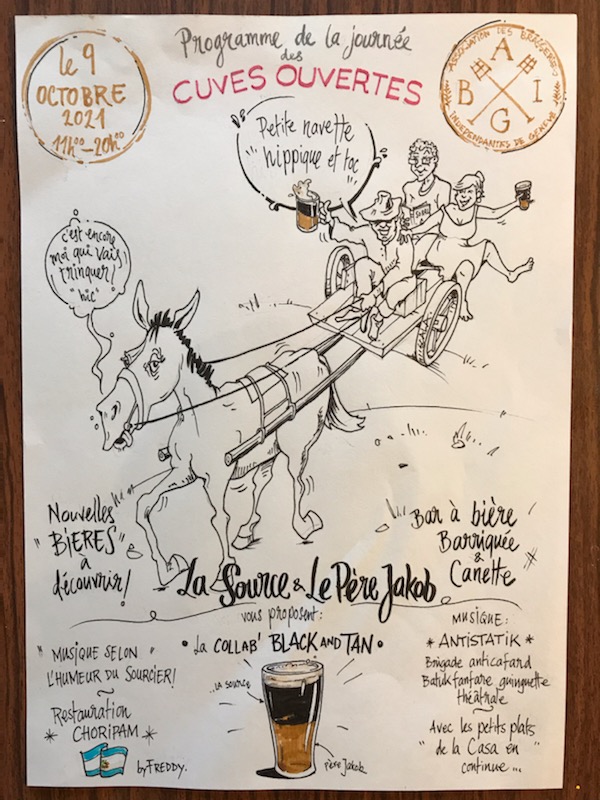 le 9
OCTOBRE
2021
11h00-20h00
Programme de la journée
des
CUVES OUVERTES
ASSOCIATION DES BRASSERIES
A
B I
G
INDEPENDANTES DE GENEVE
Petite navette
hippique et toc
c'est encore
moi qui vais
trinquer!
"hic"
Nouvelles
"BIERES"
à
découvrir!
Bar à bière
Barriquée
&
Canette
La Source & Le Père Jakob
vous proposent:
• La COLLAB' BLACK AND TAN •
...La source
Père Jakob
" MUSIQUE SELON "
L'HUMEUR DU SOURCIER!
~
Restauration
* CHORIPAM *
by FREDDY.
MUSIQUE:
* ANTISTATIK *
Brigade anticafard
Batuk fanfare guinguette
théâtrale
~
Avec les petits plats
" de la Casa en "
continue...